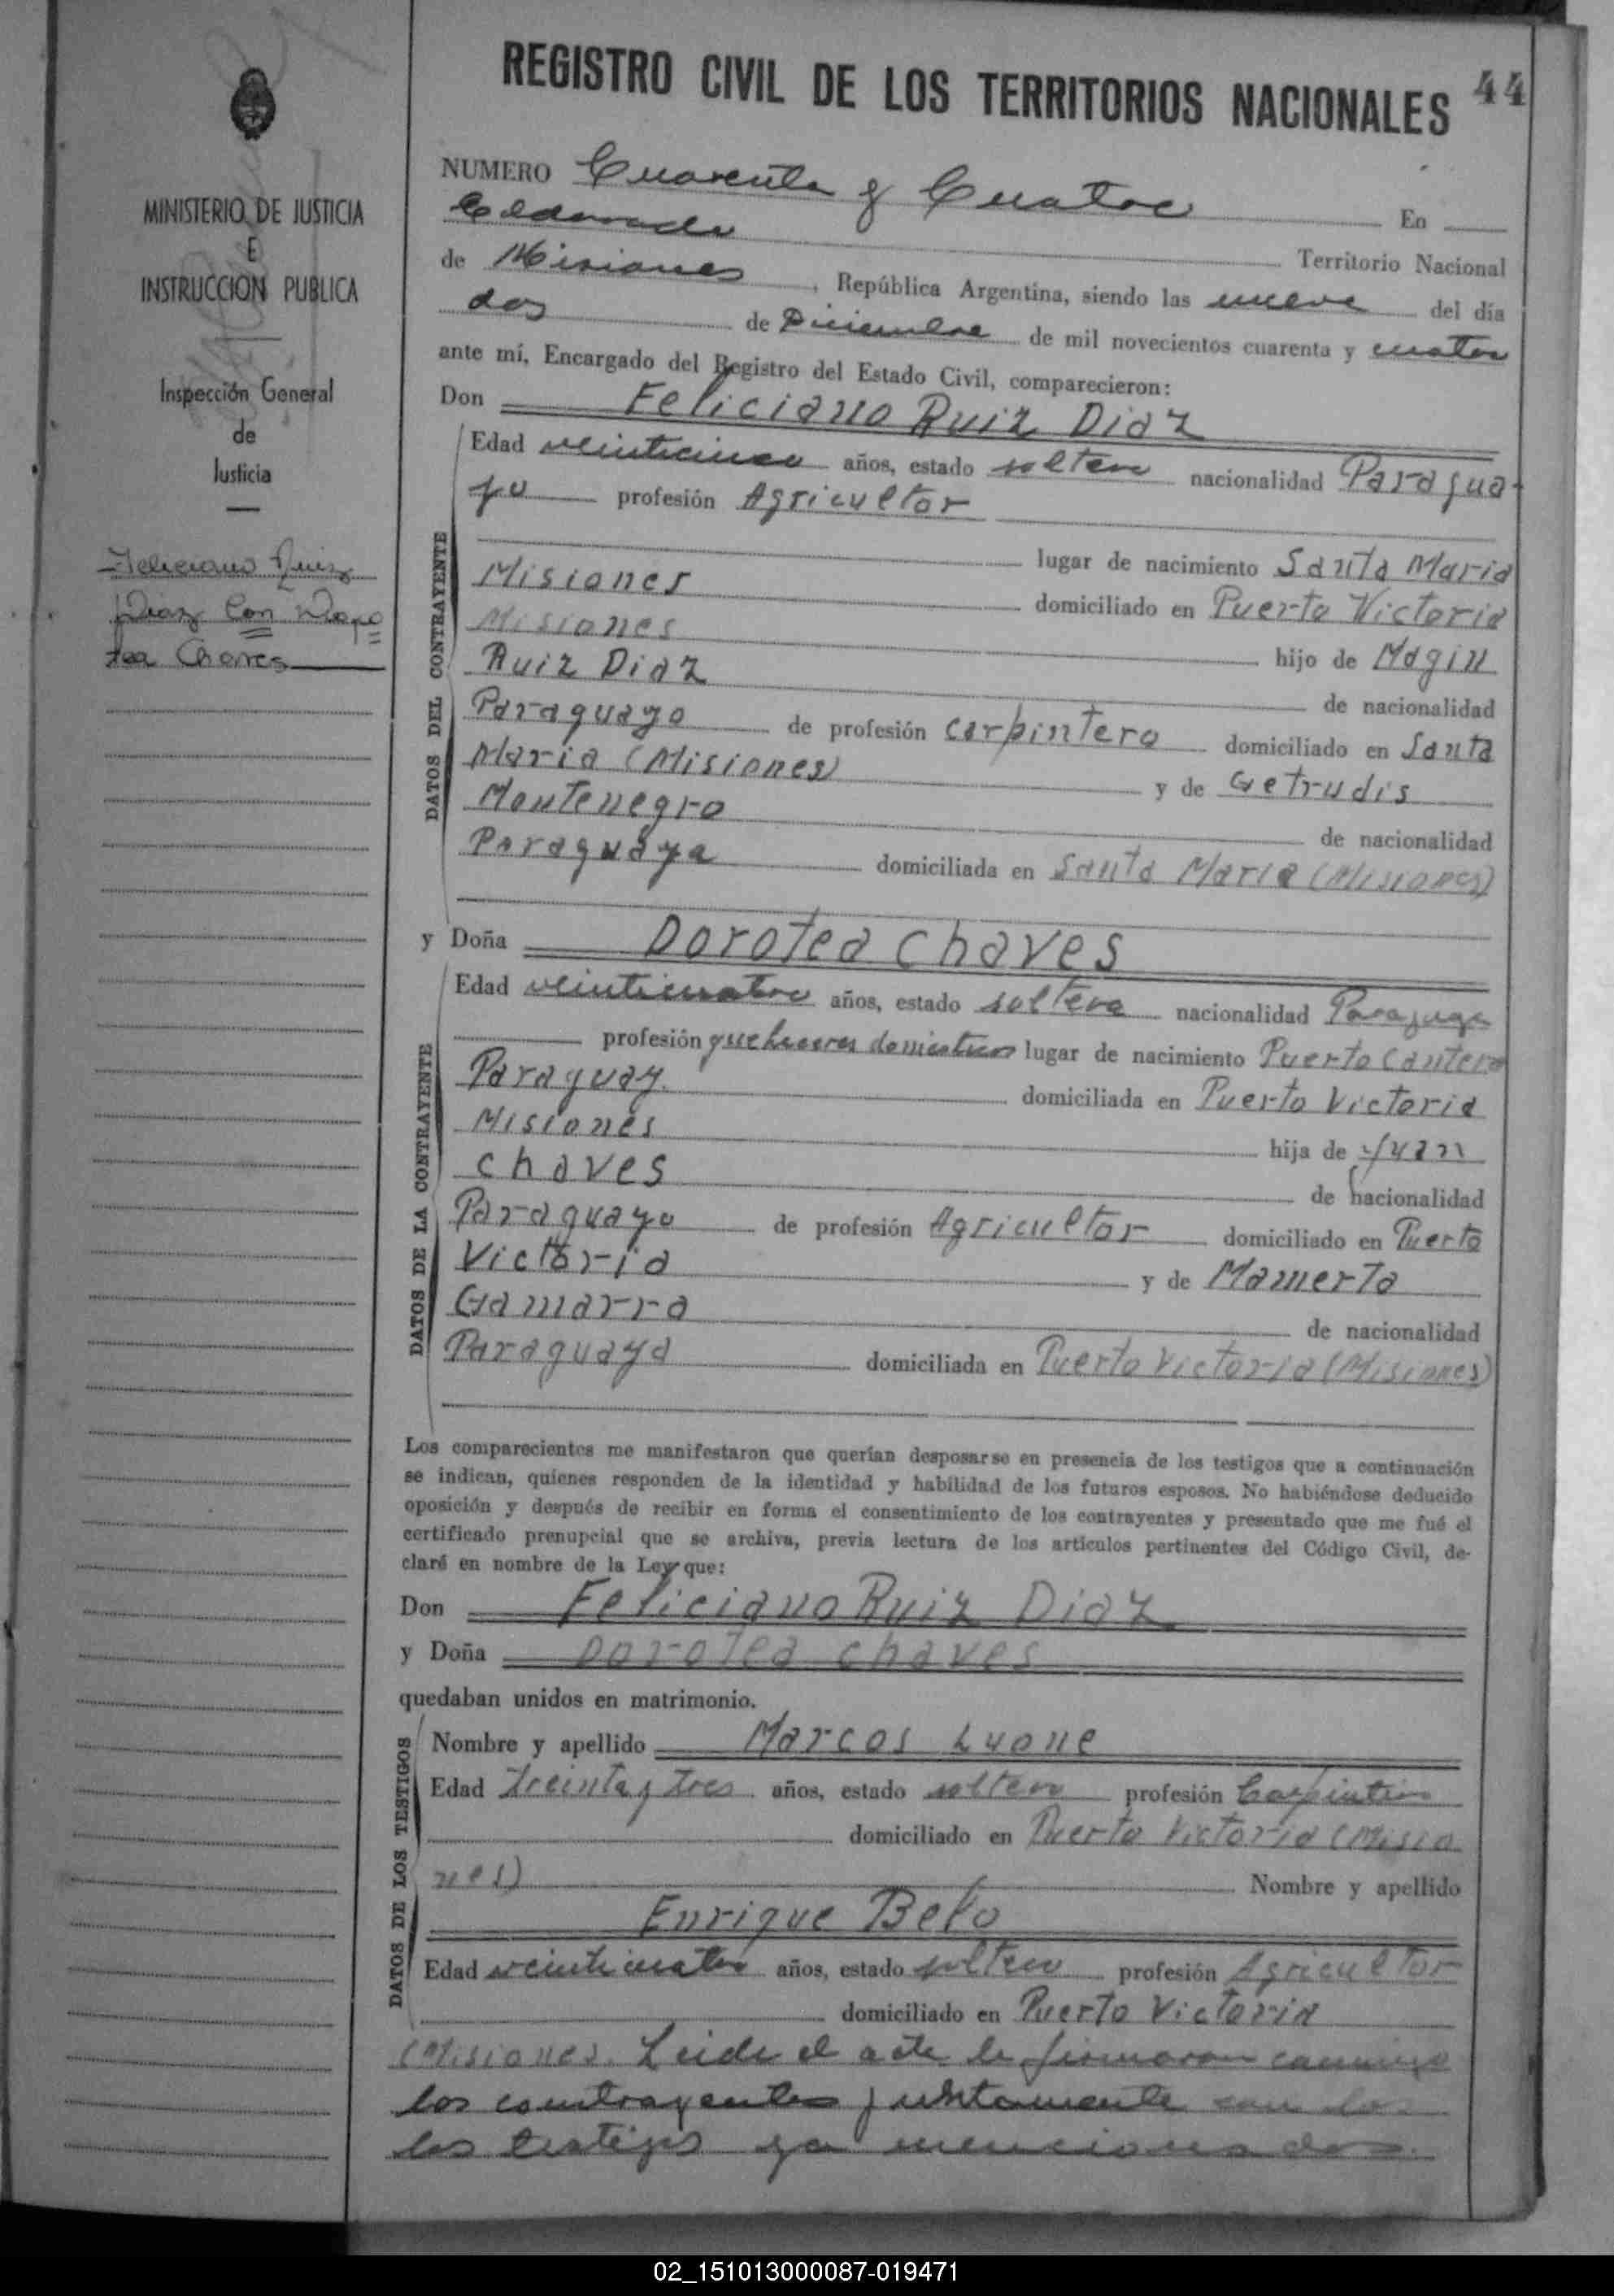 REGISTRO CIVIL DE LOS TERRITORIOS NACIONALES 44
MINISTERIO DE JUSTICIA
E
INSTRUCCION PUBLICA
Inspección General
de
Justicia
Feliciano Ruiz
Diaz Con Doro
tea Chaves
NUMERO Cuarenta y Cuatro En
Eldorado Territorio Nacional
de Misiones, República Argentina, siendo las nueve del día
dos de Diciembre de mil novecientos cuarenta y cuatro
ante mí, Encargado del Registro del Estado Civil, comparecieron:
Don Feliciano Ruiz Diaz
DATOS DEL CONTRAYENTE
Edad veinticinco años, estado soltero nacionalidad Paragua-
yo profesión Agricultor
lugar de nacimiento Santa Maria
Misiones domiciliado en Puerto Victoria
Misiones hijo de Magin
Ruiz Diaz de nacionalidad
Paraguayo de profesión Carpintero domiciliado en Santa
Maria (Misiones) y de Getrudis
Montenegro de nacionalidad
Paraguaya domiciliada en Santa Maria (Misiones)
y Doña Dorotea Chaves
DATOS DE LA CONTRAYENTE
Edad veinticuatro años, estado soltera nacionalidad Paraguaya
profesión quehaceres domesticos lugar de nacimiento Puerto Cantera
Paraguay. domiciliada en Puerto Victoria
Misiones hija de Juan
Chaves de nacionalidad
Paraguayo de profesión Agricultor domiciliado en Puerto
Victoria y de Mamerta
Gamarra de nacionalidad
Paraguaya domiciliada en Puerto Victoria (Misiones)
Los comparecientes me manifestaron que querían desposarse en presencia de los testigos que a continuación
se indican, quienes responden de la identidad y habilidad de los futuros esposos. No habiéndose deducido
oposición y después de recibir en forma el consentimiento de los contrayentes y presentado que me fué el
certificado prenupcial que se archiva, previa lectura de los artículos pertinentes del Código Civil, de-
claré en nombre de la Ley que:
Don Feliciano Ruiz Diaz
y Doña Dorotea Chaves
quedaban unidos en matrimonio.
DATOS DE LOS TESTIGOS
Nombre y apellido Marcos Luone
Edad treinta y tres años, estado soltero profesión Carpintero
domiciliado en Puerto Victoria (Misio
nes) Nombre y apellido
Enrique Belo
Edad veinticuatro años, estado soltero profesión Agricultor
domiciliado en Puerto Victoria
(Misiones. Leida el acta la firmaron conmigo
los contrayentes juntamente con los
los testigos ya mencionados.
02_151013000087-019471